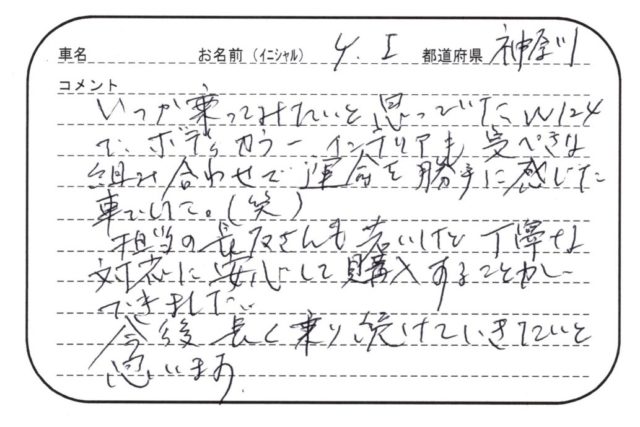 車名 お名前（イニシャル） Y.I 都道府県 神奈川
コメント
いつか乗ってみたいと思っていたW124
で、ボディカラー インテリアも 好きな
組み合わせで運命を勝手に感じた
車でした。（笑）
担当の長友さんも若いけど丁寧な
対応に安心して購入することが
できました。
今後長く乗り続けていきたいと
思います。